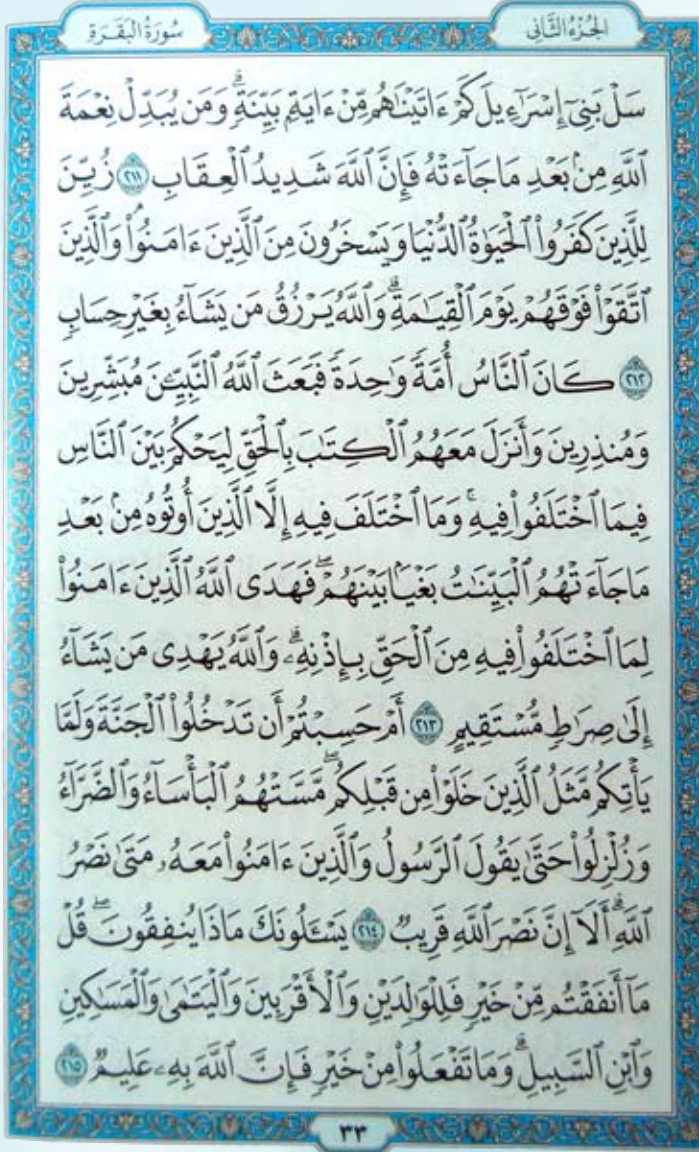 سُورَةُ البَقَرَةِ
الجُزْءُ الثَّانِي
سَلْ بَنِىٓ إِسْرَٰٓءِيلَ كَمْ ءَاتَيْنَٰهُم مِّنْ ءَايَةٍۭ بَيِّنَةٍۗ وَمَن يُبَدِّلْ نِعْمَةَ
ٱللَّهِ مِنۢ بَعْدِ مَا جَآءَتْهُ فَإِنَّ ٱللَّهَ شَدِيدُ ٱلْعِقَابِ ٢١١ زُيِّنَ
لِلَّذِينَ كَفَرُوا۟ ٱلْحَيَوٰةُ ٱلدُّنْيَا وَيَسْخَرُونَ مِنَ ٱلَّذِينَ ءَامَنُوا۟ۘ وَٱلَّذِينَ
ٱتَّقَوْا۟ فَوْقَهُمْ يَوْمَ ٱلْقِيَٰمَةِۗ وَٱللَّهُ يَرْزُقُ مَن يَشَآءُ بِغَيْرِ حِسَابٍ
٢١٢ كَانَ ٱلنَّاسُ أُمَّةً وَٰحِدَةً فَبَعَثَ ٱللَّهُ ٱلنَّبِيِّـۧنَ مُبَشِّرِينَ
وَمُنذِرِينَ وَأَنزَلَ مَعَهُمُ ٱلْكِتَٰبَ بِٱلْحَقِّ لِيَحْكُمَ بَيْنَ ٱلنَّاسِ
فِيمَا ٱخْتَلَفُوا۟ فِيهِۚ وَمَا ٱخْتَلَفَ فِيهِ إِلَّا ٱلَّذِينَ أُوتُوهُ مِنۢ بَعْدِ
مَا جَآءَتْهُمُ ٱلْبَيِّنَٰتُ بَغْيًۢا بَيْنَهُمْۖ فَهَدَى ٱللَّهُ ٱلَّذِينَ ءَامَنُوا۟
لِمَا ٱخْتَلَفُوا۟ فِيهِ مِنَ ٱلْحَقِّ بِإِذْنِهِۦۗ وَٱللَّهُ يَهْدِى مَن يَشَآءُ
إِلَىٰ صِرَٰطٍ مُّسْتَقِيمٍ ٢١٣ أَمْ حَسِبْتُمْ أَن تَدْخُلُوا۟ ٱلْجَنَّةَ وَلَمَّا
يَأْتِكُم مَّثَلُ ٱلَّذِينَ خَلَوْا۟ مِن قَبْلِكُمۖ مَّسَّتْهُمُ ٱلْبَأْسَآءُ وَٱلضَّرَّآءُ
وَزُلْزِلُوا۟ حَتَّىٰ يَقُولَ ٱلرَّسُولُ وَٱلَّذِينَ ءَامَنُوا۟ مَعَهُۥ مَتَىٰ نَصْرُ
ٱللَّهِۗ أَلَآ إِنَّ نَصْرَ ٱللَّهِ قَرِيبٌ ٢١٤ يَسْـَٔلُونَكَ مَاذَا يُنفِقُونَۖ قُلْ
مَآ أَنفَقْتُم مِّنْ خَيْرٍ فَلِلْوَٰلِدَيْنِ وَٱلْأَقْرَبِينَ وَٱلْيَتَٰمَىٰ وَٱلْمَسَٰكِينِ
وَٱبْنِ ٱلسَّبِيلِۗ وَمَا تَفْعَلُوا۟ مِنْ خَيْرٍ فَإِنَّ ٱللَّهَ بِهِۦ عَلِيمٌ ٢١٥
٣٣